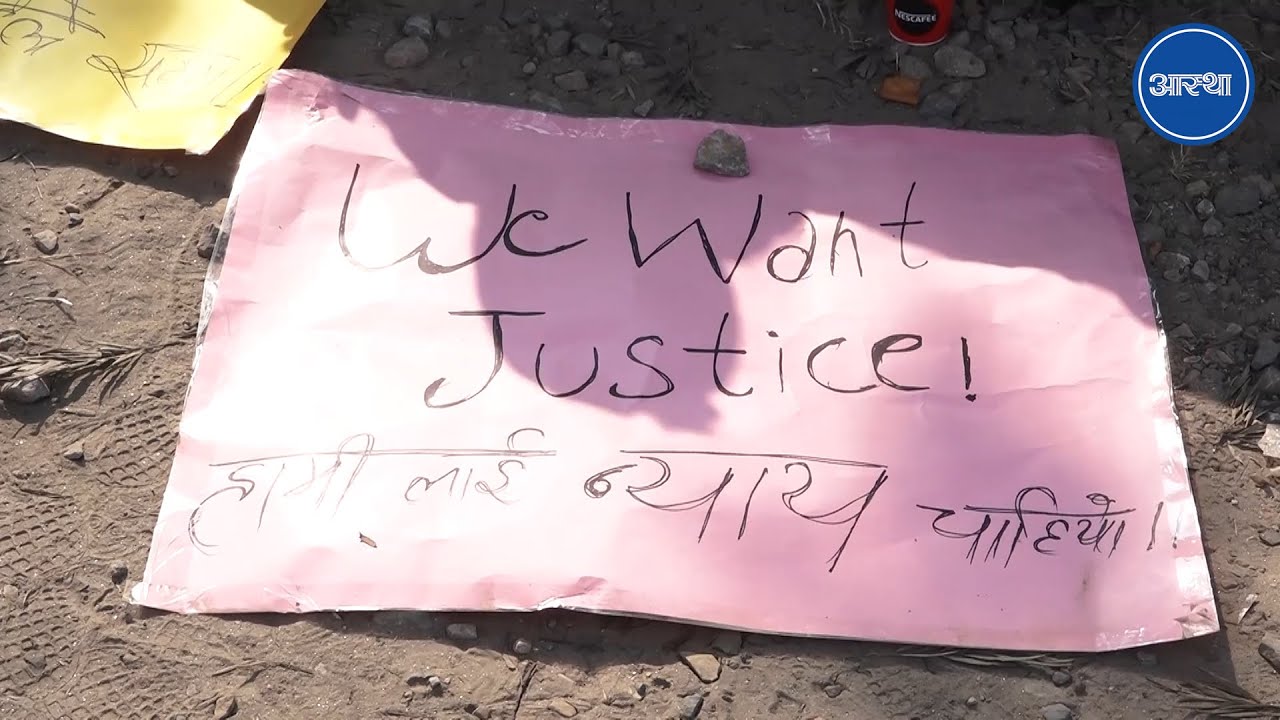 NESCAFÉ
आस्था
We Want
Justice!
हामी लाई न्याय चाहियो।।